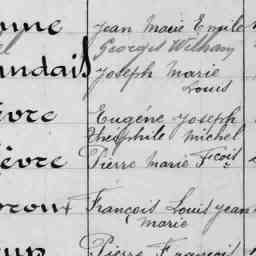 Jean Marie Emile
Georges William
Joseph Marie
Louis
Eugène Joseph
Théophile Michel
Pierre Marie Fçois
François Louis Jean
Marie
Pierre François